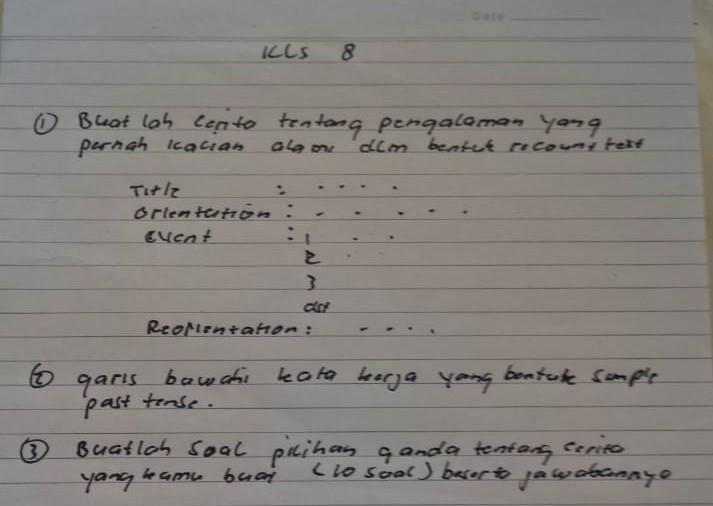 Date
KLS 8
① Buat lah Cerita tentang pengalaman yang
pernah kalian alami dlm bentuk recount text
Title : . . . .
Orientation : . . . . .
Event : 1 . .
2 .
3
dst
Reorientation : . . . .
② garis bawahi kata kerja yang bentuk simple
past tense.
③ Buatlah Soal pilihan ganda tentang cerita
yang kamu buat (10 soal) beserta jawabannya